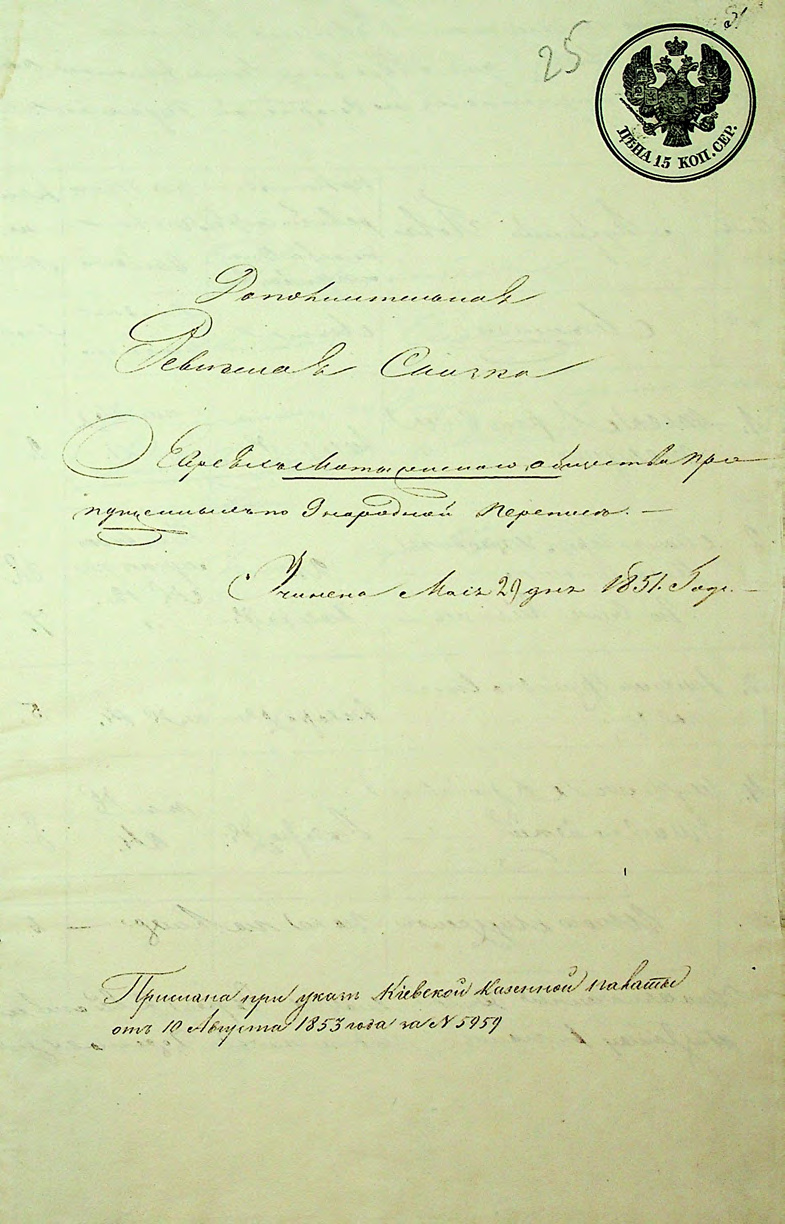 25
ЦѢНА 15 КОП. СЕР.
Дополнительная
Ревизская Сказка
Евреевъ Мотыжинскаго общества про
пущенныхъ по 9 народной переписи. —
Учинена Маія 29 дня 1851. Года. —
Прислана при указѣ Кіевской Казенной палаты
отъ 10 Августа 1853 года за N 5959